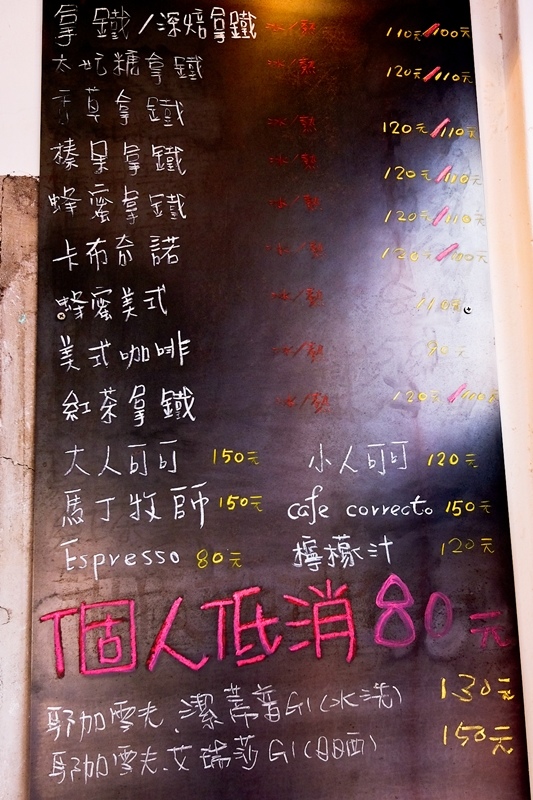 拿鐵/深焙拿鐵 冰/熱 110元/100元
太妃糖拿鐵 120元/110元
香草拿鐵 冰/熱 120元/110元
榛果拿鐵 冰/熱 120元/110元
蜂蜜拿鐵 冰/熱 120元/110元
卡布奇諾 冰/熱 120元/100元
蜂蜜美式 冰/熱
美式咖啡 冰/熱 90元
紅茶拿鐵 冰/熱 120元/100元
大人可可 150元 小人可可 120元
馬丁牧師 150元 cafe correcto 150元
Espresso 80元 檸檬汁 120元
個人低消 80元
耶加雪夫.潔蒂普G1(水洗) 130元
耶加雪夫.艾瑞莎G1(日晒) 150元